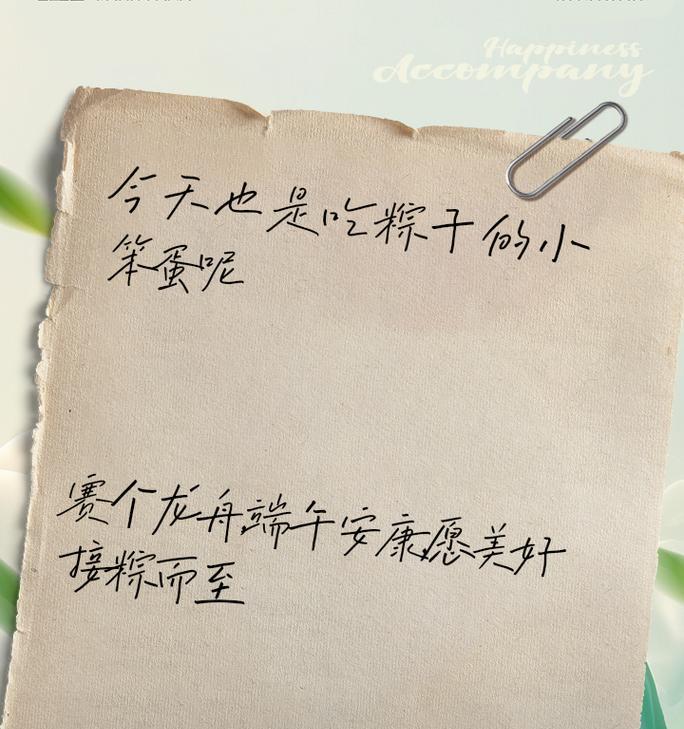 Happiness
Accompany
今天也是吃粽子的小
笨蛋呢
赛个龙舟端午安康愿美好
接粽而至